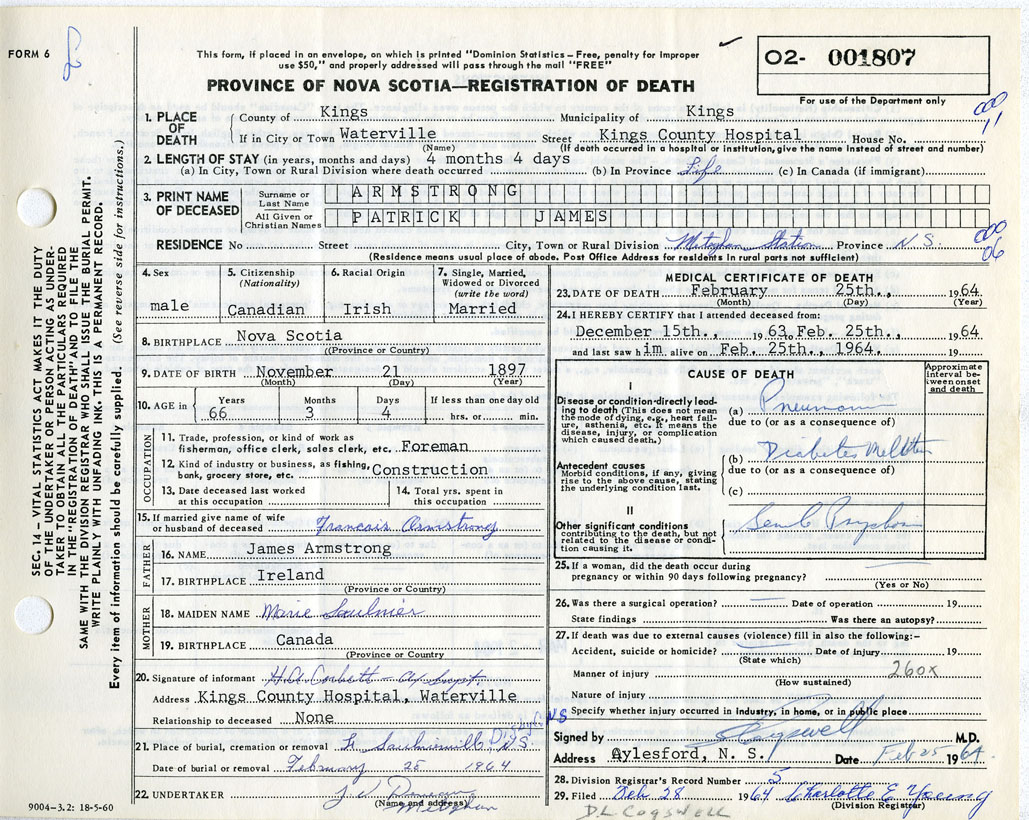 FORM 6
This form, if placed in an envelope, on which is printed "Dominion Statistics – Free, penalty for improper
use $50," and properly addressed will pass through the mail "FREE"
PROVINCE OF NOVA SCOTIA—REGISTRATION OF DEATH
O2- 001807
For use of the Department only
SEC. 14 – VITAL STATISTICS ACT MAKES IT THE DUTY
OF THE UNDERTAKER OR PERSON ACTING AS UNDER-
TAKER TO OBTAIN ALL THE PARTICULARS REQUIRED
IN THE "REGISTRATION OF DEATH" AND TO FILE THE
SAME WITH THE DIVISION REGISTRAR WHO SHALL ISSUE THE BURIAL PERMIT.
WRITE PLAINLY WITH UNFADING INK. THIS IS A PERMANENT RECORD.
Every item of information should be carefully supplied. (See reverse side for instructions.)
1. PLACE OF DEATH
County of Kings Municipality of Kings
000
11
If in City or Town Waterville Street Kings County Hospital House No.
(Name) (If death occurred in a hospital or institution, give the name instead of street and number)
2. LENGTH OF STAY (in years, months and days) 4 months 4 days
(a) In City, Town or Rural Division where death occurred (b) In Province Life (c) In Canada (if immigrant)
3. PRINT NAME OF DECEASED
Surname or Last Name ARMSTRONG
All Given or Christian Names PATRICK JAMES
000
06
RESIDENCE No Street City, Town or Rural Division Meteghan Station Province N.S.
(Residence means usual place of abode. Post Office Address for residents in rural parts not sufficient)
4. Sex male
5. Citizenship (Nationality) Canadian
6. Racial Origin Irish
7. Single, Married, Widowed or Divorced (write the word) Married
8. BIRTHPLACE Nova Scotia
((Province or Country)
9. DATE OF BIRTH November 21 1897
(Month) (Day) (Year)
10. AGE in Years 66 Months 3 Days 4 If less than one day old hrs. or min.
OCCUPATION
11. Trade, profession, or kind of work as
fisherman, office clerk, sales clerk, etc. Foreman
12. Kind of industry or business, as fishing,
bank, grocery store, etc. Construction
13. Date deceased last worked
at this occupation
14. Total yrs. spent in
this occupation
15. If married give name of wife
or husband of deceased Francais Armstrong
FATHER
16. NAME James Armstrong
17. BIRTHPLACE Ireland
(Province or Country)
MOTHER
18. MAIDEN NAME Marie Saulnier
19. BIRTHPLACE Canada
(Province or Country
20. Signature of informant
Address Kings County Hospital, Waterville
Relationship to deceased None
21. Place of burial, cremation or removal N.S.
Date of burial or removal February 25 1964
22. UNDERTAKER
(Name and address)
Meteghan
9004-3.2: 18-5-60
MEDICAL CERTIFICATE OF DEATH
23. DATE OF DEATH February 25th., 1964
(Month) (Day) (Year)
24. I HEREBY CERTIFY that I attended deceased from:
December 15th., 1963 Feb. 25th., 1964
and last saw him alive on Feb. 25th., 1964. 19
CAUSE OF DEATH
Approximate interval between onset and death
I
Disease or condition directly lead-
ing to death (This does not mean
the mode of dying, e.g., heart fail-
ure, asthenia, etc. It means the
disease, injury, or complication
which caused death.)
(a) Pneumonia
due to (or as a consequence of)
Antecedent causes
Morbid conditions, if any, giving
rise to the above cause, stating
the underlying condition last.
(b) Diabetes Mellitus
due to (or as a consequence of)
(c)
II
Other significant conditions
contributing to the death, but not
related to the disease or condi-
tion causing it.
25. If a woman, did the death occur during
pregnancy or within 90 days following pregnancy?
(Yes or No)
26. Was there a surgical operation? Date of operation 19
State findings Was there an autopsy?
27. If death was due to external causes (violence) fill in also the following:–
Accident, suicide or homicide? Date of injury 19
(State which)
Manner of injury 260x
(How sustained)
Nature of injury
Specify whether injury occurred in industry, in home, or in public place
Signed by Cogswell M.D.
Address Aylesford, N. S. Date Feb 25 1964
28. Division Registrar's Record Number 5
29. Filed Feb 28 1964 Charlotte E Young
(Division Registrar)
D.L COGSWELL